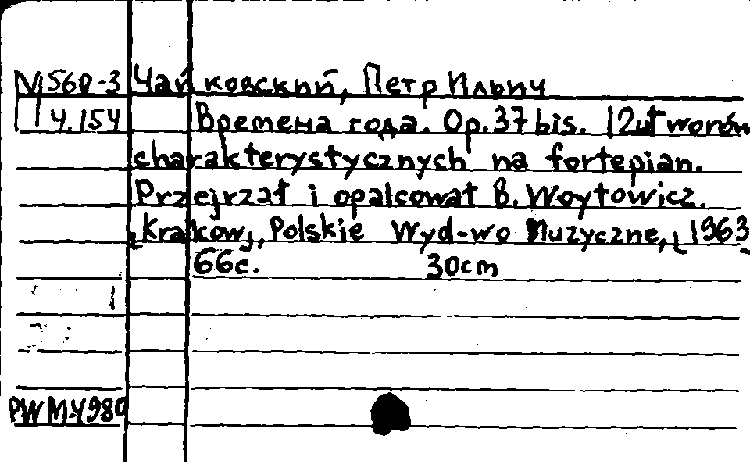 М560-3 Чайковский, Петр Ильич
14.154 Времена года. Op. 37 bis. 12 utworów
charakterystycznych na fortepian.
Przejrzał i opalcował B. Woytowicz.
[Kraków], Polskie Wyd-wo Muzyczne, [1963]
66с. 30cm
1
PWM-4980